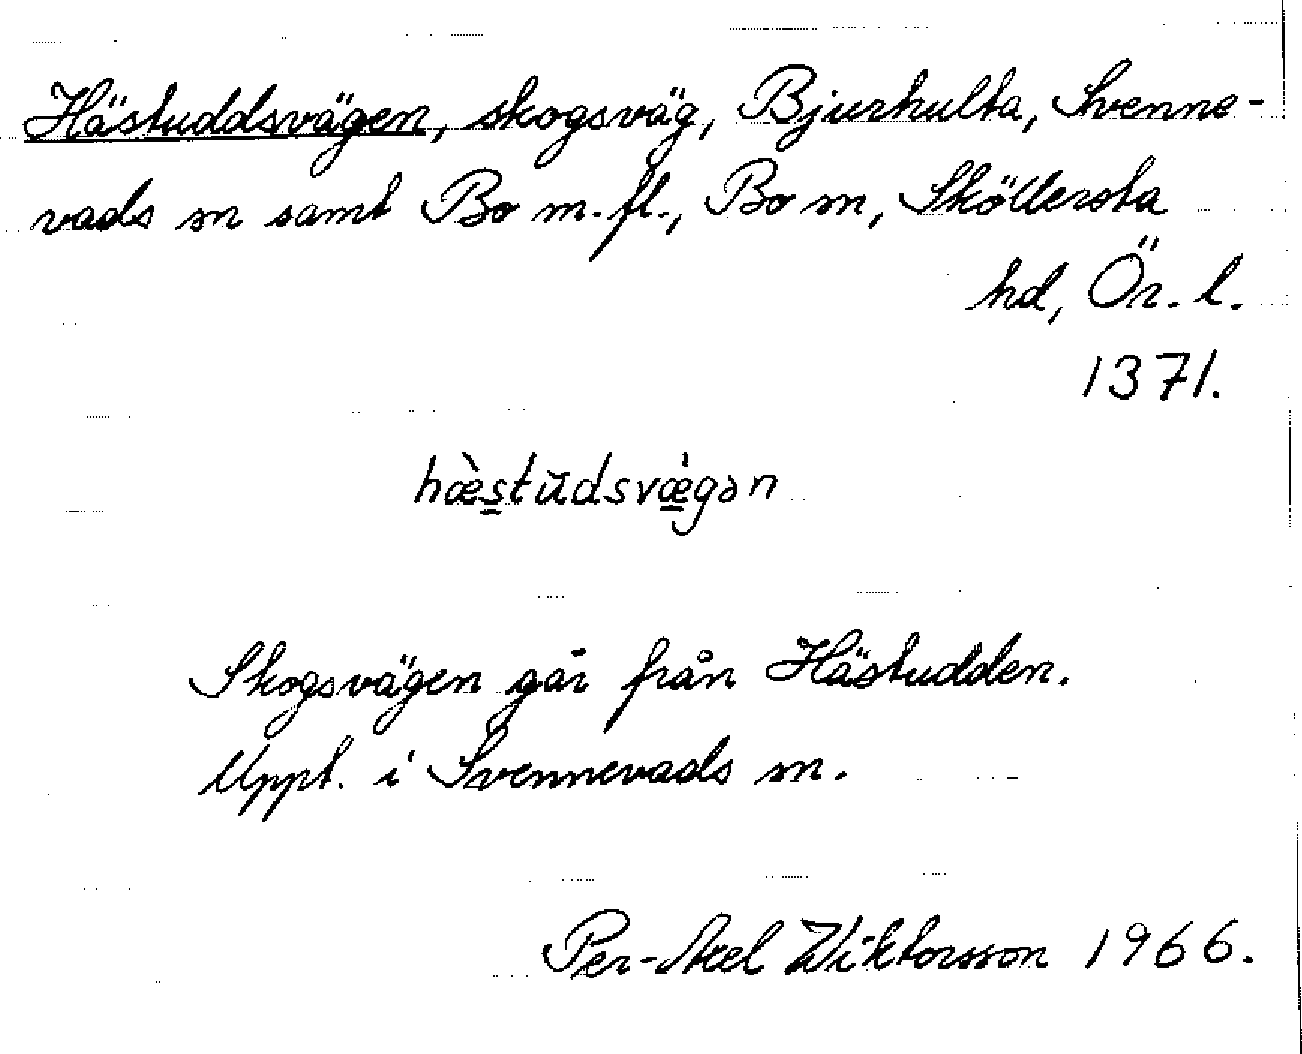 Hästuddsvägen, skogsväg, Bjurhulta, Svenne-
vads sn samt Bo m.fl., Bo sn, Sköllersta
hd, Ör. l.
1371.
hæ̀stŭdsvæ̀gən
Skogsvägen går från Hästudden.
Uppt. i Svennevads sn.
Per-Axel Wiktorsson 1966.